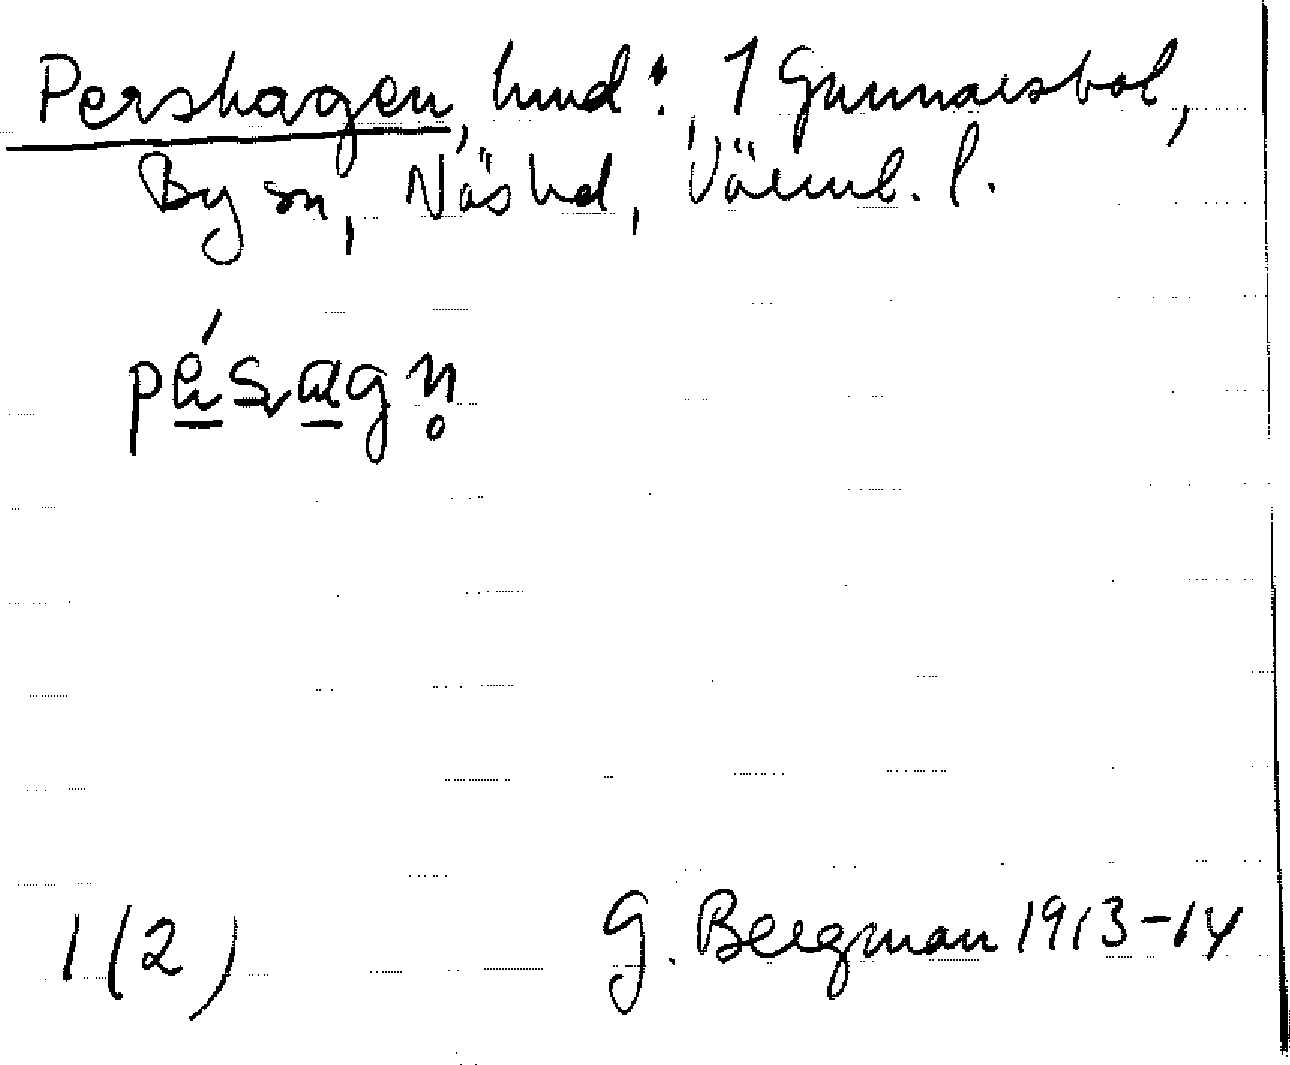 Pershagen, hmd: 1 Gunnarsbol,
By sn, Näs hd, Värml. l.
pésagn̥
1 (2)
G. Bergman 1913-14